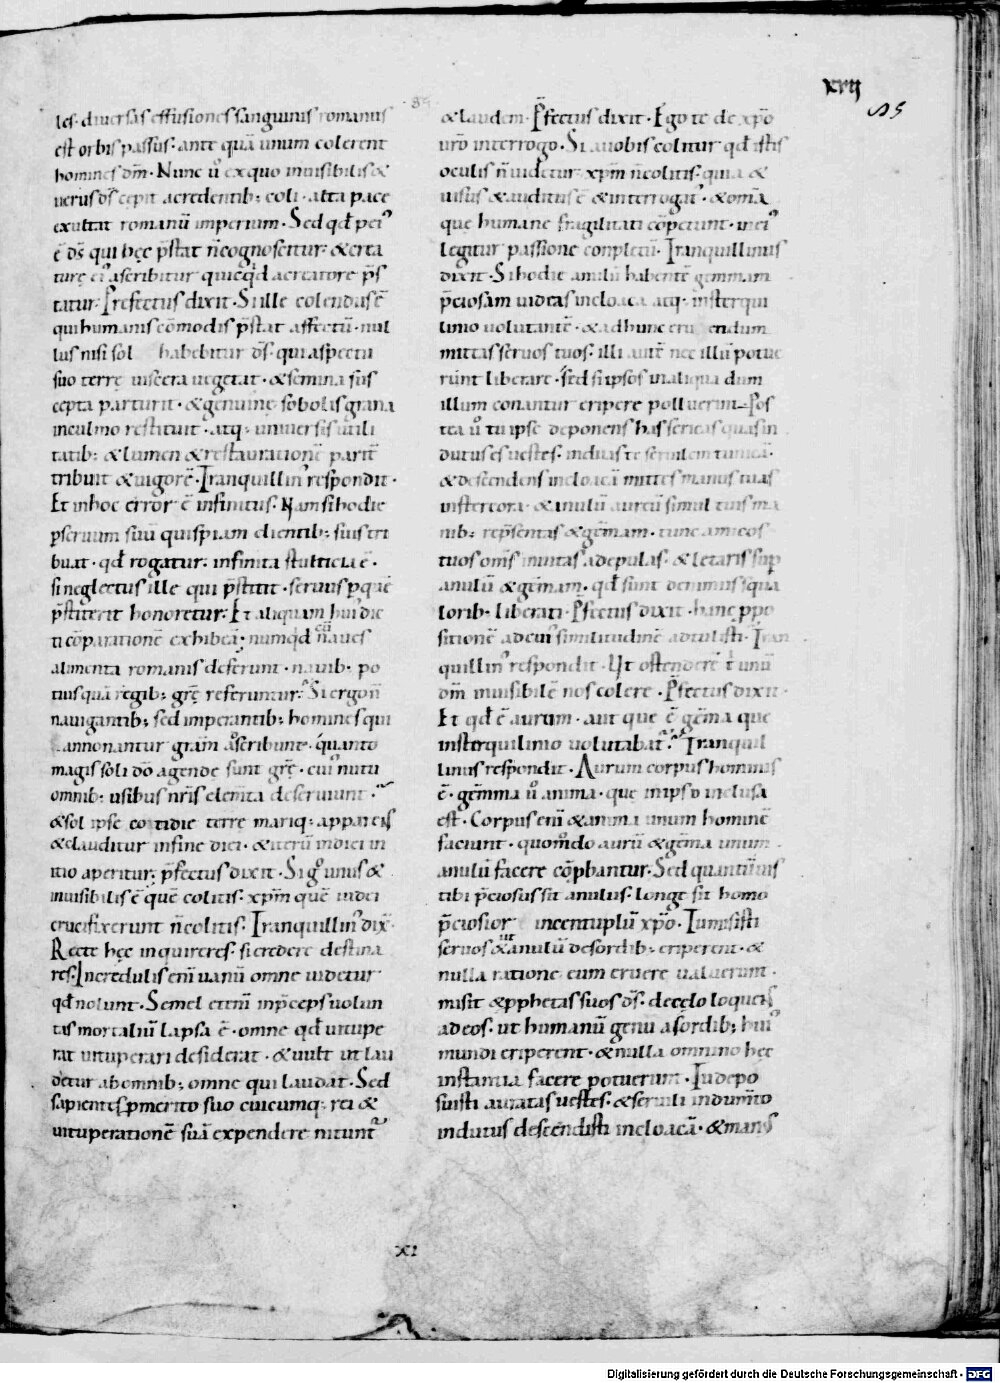 xvij
85
les. diuersas effusiones sanguinis romanus
est orbis passus. ante quā unum colerent
homines dm̄. Nunc u̾ exquo inuisibilis &
uerus ds̄ cepit acredentib; coli. alta pace
exultat romanū imperium. Sed qđ pei᾽
ē ds̄ qui hęc p̄stat n̄cognoscitur. & crea
turę ei᾽ ascribitur quicqđ acreatore p̄s
tatur. Prefectus dixit. Si ille colendus ē
qui humanis cōmodis p̄stat affectū. nul
lus nisi sol habebitur ds̄. qui aspectu
suo terrę uiscera uegetat. & semina suis
cepta parturit. & genuinę sobolis grana
inculmo restituit. atq; uniuersis utili
tatib; & lumen & restaurationē parit̄
tribuit & uigorē. Tranquillin᾽ respondit.
Et inhoc error ē infinitus. Nam si hodie
ꝑseruum suū quispiam clientib; suis tri
buat. qđ rogatur. infinita stulticia ē.
si neglectus ille qui p̄stitit. seruus ꝑquē
p̄stiterit honoretur. Et aliquam hui᾽ die
ti cōparationē exhibeā. numqđ n̄ naues
alimenta romanis deferunt. nauib; po
tius quā regib; grē referuntur. Si ergo n̄
nauigantib; sed imperantib; homines qui
annonantur gram̄ ascribunt. quanto
magis soli dō agendę sunt grē. cui᾽ nutu
omnib; usibus nr̄is elem̄ta deseruiunt.
& sol ipse cotidie terrę mariq; appareis
& clauditur in fine diei. & iterū indici in
itio aperitur. p̄fectus dixit. Si g̊ unus &
inuisibilis ē quē colitis. xpm̄ quē iudei
crucifixerunt n̄colitis. Tranquillin᾽ dix̄.
Recte hęc inquireres. si credere destina
res. Incredulis enī uanū omne uidetur
qđ nolunt. Semel etenī inp̄ceps uolun
tas mortaliū lapsa ē. omne qđ uitupe
rat uituperari desiderat. & uult ut lau
detur abomnib; omne qui laudat. Sed
sapientes ꝑmerito suo cuicumq; rei &
uituperationē suā expendere nitunt᾽
& laudem. P̄fectus dixit. Ego te de xpō
urō interrogo. Si auobis colitur qđ istis
oculis n̄ uidetur. xpm̄ n̄colitis. quia &
uisus & auditus ē & interrogat᾽. & omīa
que humane fragilitati cōpetunt. inei᾽
legitur passione conpletū. Tranquillinus
dixit. Si hodie anulū habentē gemmam
p̄ciosam uideas incloaca atq; insterqui
linio uolutantē. & adhunc eru endum
mittas seruos tuos. illi autē nec illū potue
runt liberare. sed si ipsos inaliqua dum
illum conantur eripere polluerint. Pos
tea u̾ tu ipse deponens has sericas quas in
dutus es uestes. induas te seruilem tunicā.
& descendens incloacā mittes manus tuas
instercora. & anulū aureū simul tuis ma
nib; rep̄sentas & gēmam. tunc amicos
tuos om̄s inuitas adepulas. & letaris sup̄
anulū & gēmam. qđ sunt denimiis squa
lorib; liberati. P̄fectus dixit. hanc ꝓpo
sitionē adcui᾽ similitudinē adtulisti. Tran
quillin᾽ respondit. Ut ostenderē t̄ unū
dm̄ inuisibilē nos colere. P̄fectus dixit.
Et qđ ē aurum. aut que ē gēma que
insterquilinio uolutabat᾽. Tranquil
linus respondit. Aurum corpus hominis
ē. gēmma u̾ anima. que in ipso inclusa
est. Corpus enī & anima unum hominē
faciunt. quomodo aurū & gēma unum
anulū facere cōpbantur. Sed quantūuis
tibi p̄ciosus sit anulus. longe sit homo
p̄ciosior incentuplū xpō. Tu misisti
seruos ut anulū desordib; eriperent. &
nulla ratione eum eruere ualuerunt.
misit & ꝓphetas suos ds̄. decelo loqueis
ad eos. ut humanū genu asordib; hui᾽
mundi eriperent. & nulla omnino hęc
instantia facere potuerunt. Tu depo
suisti auratas uestes. & seruili indumto
indutus descendisti incloacā. & manus
xi
Digitalisierung gefördert durch die Deutsche Forschungsgemeinschaft - DFG